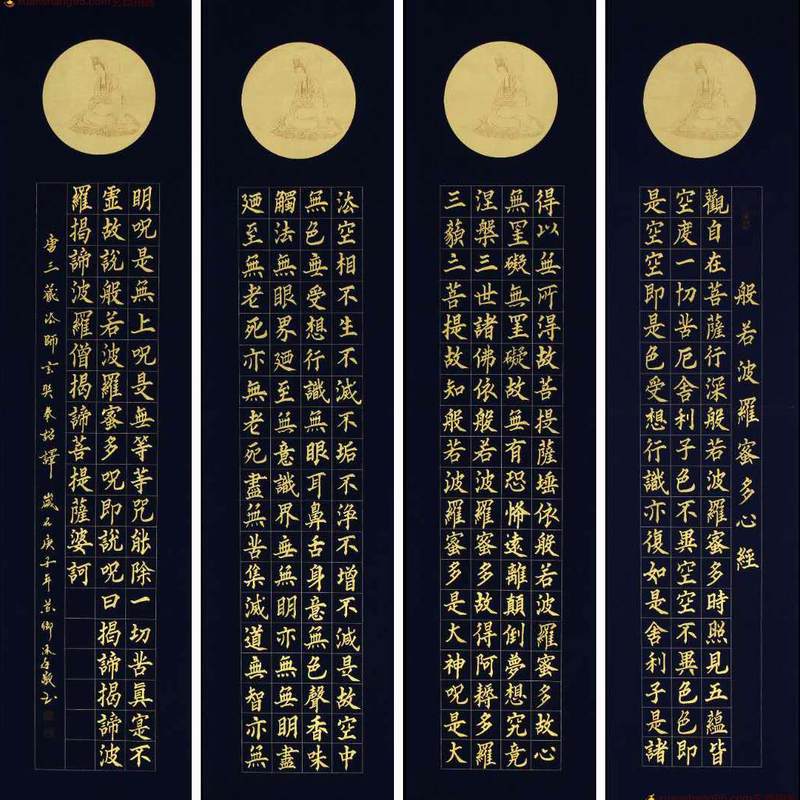 般若波羅蜜多心經
觀自在菩薩行深般若波羅蜜多時照見五蘊皆
空度一切苦厄舍利子色不異空空不異色色即
是空空即是色受想行識亦復如是舍利子是諸
法空相不生不滅不垢不淨不增不減是故空中
無色無受想行識無眼耳鼻舌身意無色聲香味
觸法無眼界廼至無意識界無無明亦無無明盡
廼至無老死亦無老死盡無苦集滅道無智亦無
得以無所得故菩提薩埵依般若波羅蜜多故心
無罣礙無罣礙故無有恐怖遠離顛倒夢想究竟
涅槃三世諸佛依般若波羅蜜多故得阿耨多羅
三藐三菩提故知般若波羅蜜多是大神呪是大
明呪是無上呪是無等等咒能除一切苦真寔不
虛故說般若波羅蜜多呪即說呪曰揭諦揭諦波
羅揭諦波羅僧揭諦菩提薩婆訶
唐三藏法師玄奘奉詔譯 歲在庚午年